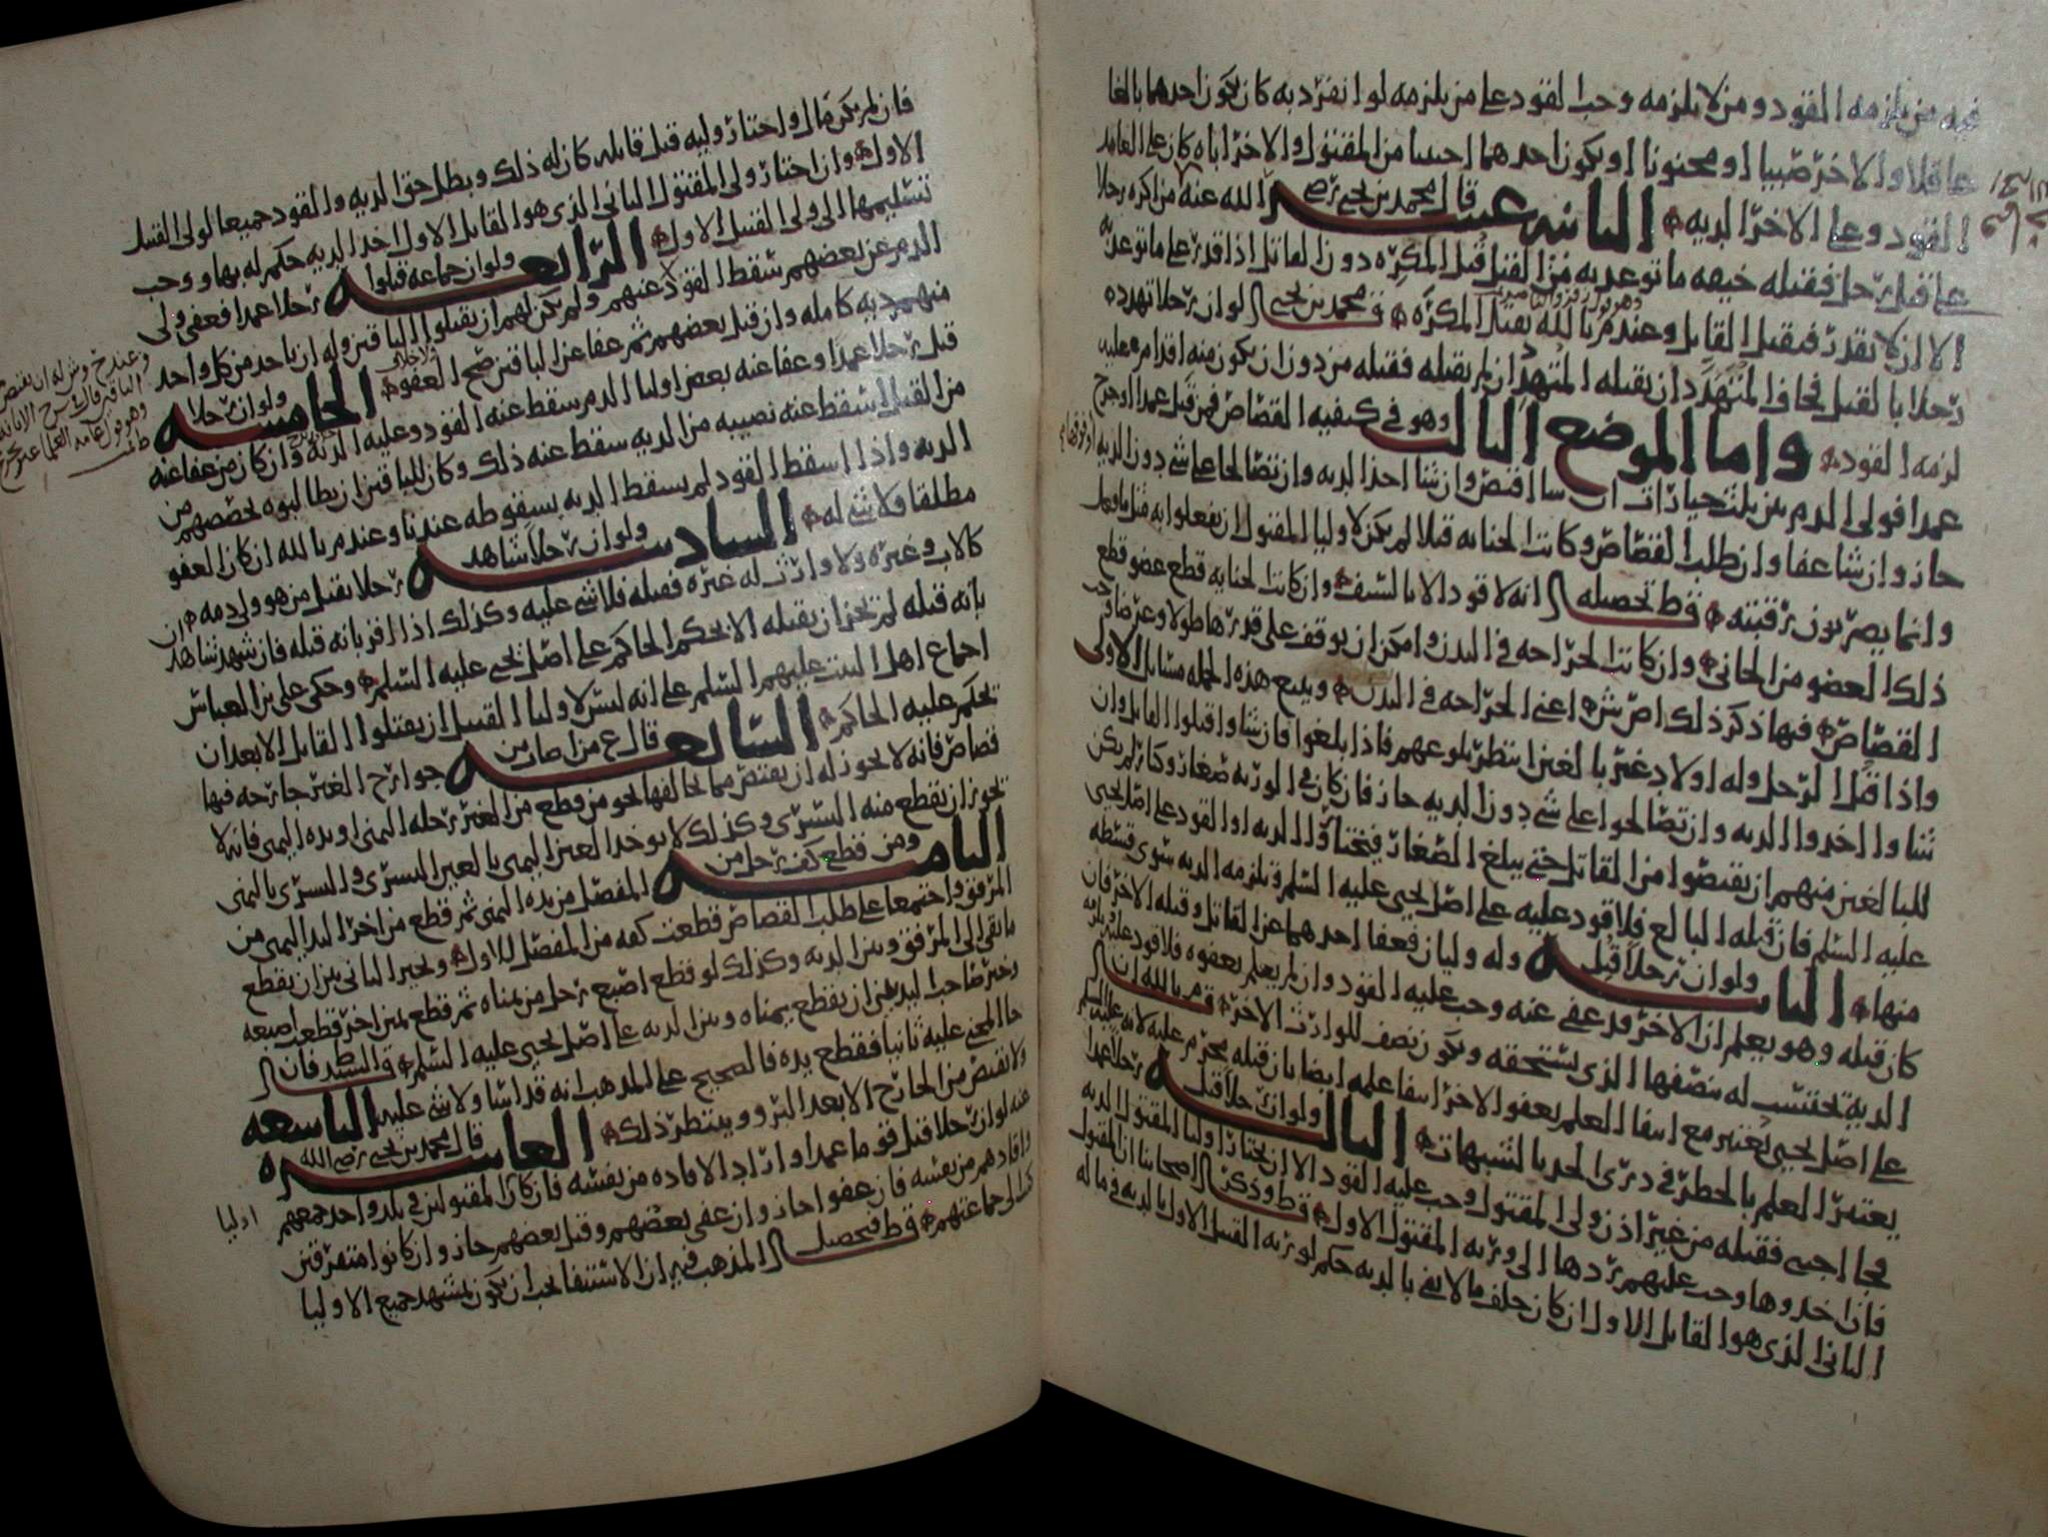 فيه من يلزمه القود ومن لا يلزمه وجب القود على من يلزمه لو انفرد به كان يكون احدهما بالغا
عاقلا والاخر صبيا او مجنونا او يكون احدهما اجنبيا من المقتول والاخر اباه كان على العامد
القود وعلى الاخر الديه الثانيه عشر قال محمد بن يحيى رضي الله عنه من اكره رجلا
على قتل رجل فقتله خيفه ما توعد به من القتل قتل المكره دون القاتل اذا قدر على ما توعد به
الا ان لا يقدر فيقتل القاتل وعند م بالله يقتل المكره ق محمد بن يحيى لو ان رجلا تهدده
رجلا بالقتل فخاف المتهدد ان يقتله المتهدد ان لم يقتله فقتله من دون ان يكون منه اقدام عليه
لزمه القود واما الموضع الثالث وهو في كيفيه القصاص فمن قتل عمدا او جرح
عمدا فولي الدم بين ثلث خيارات ان شا اقتص وان شا اخذ الديه وان تصالحا على شي دون الديه
جاز وان شا عفا وان طلب القصاص وكانت الجنايه قتلا لم يكن لاوليا المقتول ان يفعلوا به مثل ما فعل
وانما يضربون رقبته ق ط تحصيله انه لا قود الا بالسيف وان كانت الجنايه قطع عضو قطع
ذلك العضو من الجاني وان كانت الجراحه في البدن وامكن ان يوقف على قدرها طولا وعرضا وجب
القصاص فيها ذكر ذلك اعني الجراحه في البدن ويتبع هذه الجمله مسايل الاولى
واذا قتل الرجل وله اولاد غير بالغين انتظر بلوغهم فاذا بلغوا فان شاوا قتلوا القاتل وان
شاوا اخذوا الديه وان تصالحوا على شي دون الديه جاز فان كان في الورثه صغار وكبار لم يكن
للبالغين منهم ان يقتصوا من القاتل حتى يبلغ الصغار فيختار الديه او القود على اصل يحيى
عليه السلم فان قتله البالغ فلا قود عليه على اصل يحيى عليه السلم وتلزمه الديه سوى قسطه
منها الثانيه ولو ان رجلا قتل وله وليان فعفا احدهما عن القاتل وقتله الاخر فان
كان قتله وهو يعلم ان الاخر قد عفى عنه وجب عليه القود وان لم يعلم بعفوه فلا قود عليه ويلزمه
الديه يحتسب له بنصفها الذي يستحقه ويكون نصف للوارث الاخر ق م بالله ان
على اصل يحيى يعتبر مع انتفا العلم بعفو الاخر انتفا علمه ايضا بان قتله محرم عليه لانه عليه السلم
يعتبر العلم بالحظر في درى الحد بالشبهات الثالثه ولو ان رجلا قتل رجلا عمدا
فجا اجنبي فقتله من غير اذن ولي المقتول وجب عليه القود الا ان يختار اوليا المقتول الديه
فان اخذوها وجب عليهم ردها الى ورثه المقتول الاول ق ط وذكر اصحابنا ان المقتول
الثاني الذي هو القاتل الاول ان كان خلف مالا يفي بالديه حكم لورثه القتيل الاول بالديه في ماله
فان لم يكن مال واختار وليه قتل قاتله كان له ذلك وبطل حق الديه والقود جميعا لولي القتيل
الاول وان اختار ولي المقتول الثاني الذي هو القاتل الاول اخذ الديه حكم له بها ووجب
تسليمها الى ولي القتيل الاول الرابعه ولو ان جماعه قتلوا رجلا عمدا فعفى ولي
الدم عن بعضهم سقط القود عنهم ولم يكن لهم ان يقتلوا الباقين وله ان ياخذ من كل واحد
منهم ديه كامله وان قتل بعضهم ثم عفا عن الباقين صح العفو الخامسه ولو ان رجلا
قتل رجلا عمدا وعفا عنه بعض اوليا الدم سقط عنه القود وعليه الديه وان كان من عفا عنه
من القتل اسقط عنه نصيبه من الديه سقط عنه ذلك وكان للباقين ان يطالبوه بحصصهم من
الديه واذا اسقط القود لم يسقط الديه بسقوطه عندنا وعند م بالله ان كان العفو
مطلقا فلا شي له السادسه ولو ان رجلا شاهد رجلا يقتل من هو ولي دمه
كالاب وغيره ولا وارث له غيره فقتله فلا شي عليه وكذلك اذا اقر بانه قتله فان شهد شاهد
بانه قتله لم يجز ان يقتله الا بحكم الحاكم على اصل يحيى عليه السلم وحكى علي بن العباس
اجماع اهل البيت عليهم السلم على انه ليس لاوليا القتيل ان يقتلوا القاتل الا بعد ان
يحكم عليه الحاكم السابعه قال ع من اصاب من جوارح الغير جارحه فيها
قصاص فانه لا يجوز له ان يقتص مما يخالفها نحو من قطع من الغير رجله اليمنى او يده اليمنى فانه لا
يجوز ان يقطع منه اليسرى وكذلك لا يوخذ العين اليمنى بالعين اليسرى واليسرى باليمنى
الثامنه ومن قطع كف رجل من المفصل من يده اليمنى ثم قطع من اخر اليد اليمنى من
المرفق واجتمعا على طلب القصاص قطعت كفه من المفصل للاول وخير الثاني بين ان يقطع
ما بقي الى المرفق وبين الديه وكذلك لو قطع اصبع رجل من يمناه ثم قطع يمين اخر قطعت اصبعه
وخير صاحب اليد بين ان يقطع يمناه وبين الديه على اصل يحيى عليه السلم ق السيد فان
جا المجني عليه ثانيا فقطع يده فالصحيح على المذهب انه قد اسا ولا شي عليه التاسعه
ولا يقتص من الجارح الا بعد البرو وينتظر ذلك العاشره قال محمد بن يحيى رضي الله
عنه لو ان رجلا قتل قوما عمدا واراد الافاده من نفسه فان كان المقتولين في بلد واحد جمعهم
واقادهم من نفسه فان عفوا جاز وان عفى بعضهم وقتل بعضهم جاز وان كانوا متفرقين
كتب الى جماعتهم ق ط فتحصيل المذهب فيه ان الاستيفا يجب ان يكون بمشهد جميع الاوليا
اوليا